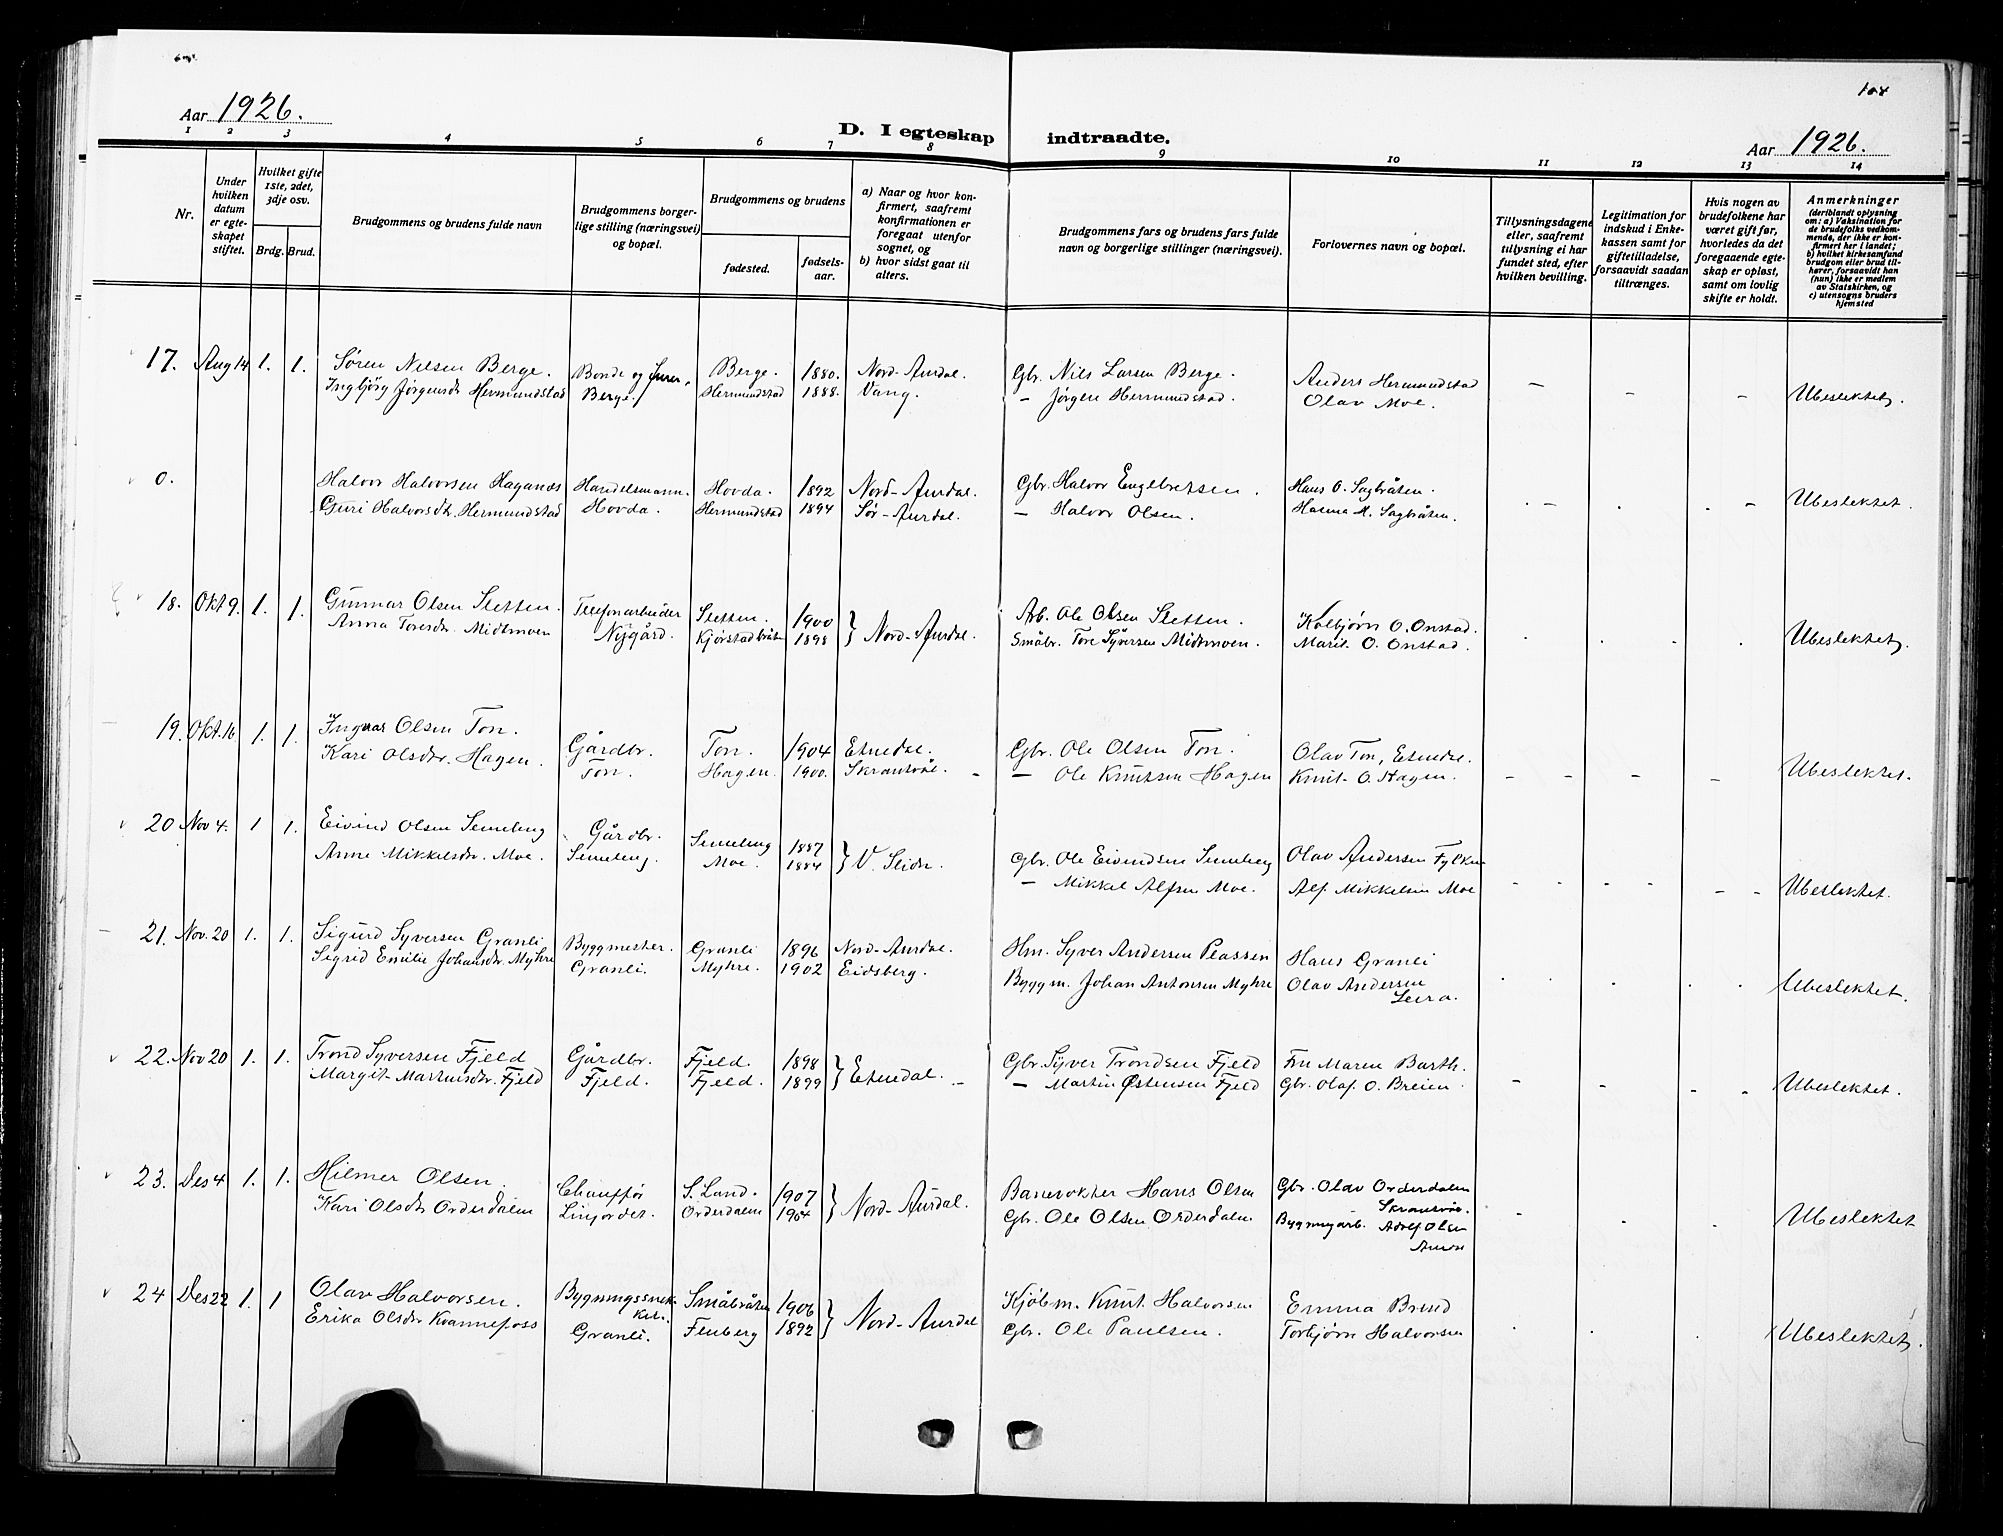 104
Aar 1926.
D. I egteskap indtraadte.
Aar 1926.
1 2 3 4 5 6 7 8 9 10 11 12 13 14
Nr.
Under hvilken datum er egteskapet stiftet.
Hvilket gifte 1ste, 2det, 3dje osv.
Brdg. Brud.
Brudgommens og brudens fulde navn
Brudgommens borgerlige stilling (næringsvei) og bopæl.
Brudgommens og brudens
fødested.
fødselsaar.
a) Naar og hvor konfirmert, saafremt konfirmationen er foregaat utenfor sognet, og
b) hvor sidst gaat til alters.
Brudgommens fars og brudens fars fulde navn og borgerlige stillinger (næringsvei).
Forlovernes navn og bopæl.
Tillysningsdagene eller, saafremt tillysning ei har fundet sted, efter hvilken bevilling.
Legitimation for indskud i Enkekassen samt for giftetilladelse, forsaavidt saadan tiltrænges.
Hvis nogen av brudefolkene har været gift før, hvorledes da det foregaaende egteskap er opløst, samt om lovlig skifte er holdt.
Anmerkninger
(deriblandt oplysning om: a) Vaksination for de brudefolks vedkommende, der ikke er konfirmert her i landet; b) hvilket kirkesamfund brudgom eller brud tilhører, forsaavidt han (hun) ikke er medlem av Statskirken, og c) utensogns bruders hjemsted
17. Aug 14 1. 1. Søren Nielsen Berge. Bonde og Berge. 1880. Nord-Aurdal. Gbr. Nils Larsen Berge. Anders Hermundstad
Ingbjörg Jørgensdr Hermundstad Berge. Hermundstad 1888. Vang. — Jørgen Hermundstad. Olav Moe. — — — Ubeslektet.
0. Halvor Halvorsen Haganes Handelsmann. Hovda. 1892 Nord-Aurdal. Gbr. Halvor Engebretsen. Hans O. Sagbråten.
Guri Halvorsdtr. Hermundstad Hovda. Hermundstad 1894 Sør-Aurdal. — Halvor Olsen. Hanna M. Sagbråten. — — Ubeslektet.
18. Okt 9. 1. 1. Gunnar Olsen Sletten. Telefonarbeider Sletten. 1900 } Nord-Aurdal. Arb. Ole Olsen Sletten. Kolbjørn O. Onstad.
Anna Toresdr. Midtmoen Nygård. Kjørstadbråten 1898 Småbr. Tore Syversen Midtmoen. Marit O. Onstad. Ubeslektet.
19. Okt. 16 1. 1. Ingvar Olsen Ton. Gårdbr. Ton. 1904 Etnedal. Gbr. Ole Olsen Ton. Olav Ton, Etnedal.
Kari Olsdtr. Hagen. Ton. Hagen. 1900. Skrautvål. — — Ole Knutsen Hagen Knut O. Hagen. — — — — Ubeslektet.
20 Nov 4. 1 1. Eivind Olsen Semeleng Gårdbr. Semeleng 1887 } V. Slidre. Gbr. Ole Eivindsen Semeleng Olav Andersen
Anne Mikkelsdr. Moe. Semeleng. Moe 1884 — Mikkel Alfsen Moe. Alf Mikkelsen Moe — — — — — — Ubeslektet.
21. Nov. 20 1. 1. Sigurd Syversen Granli Byggmester. Granli 1896 Nord-Aurdal. Hm. Syver Andersen Plassen Hans Granli
Sigrid Emilie Johansdr. Myhre Granli. Myhre. 1902 Eidsberg. Byggm. Johan Antonsen Myhre Olav Andersen Leira. Ubeslektet.
22. Nov 20 1. 1. Trond Syversen Fjeld Gårdbr. Fjeld. 1898 } Etnedal. — Gbr. Syver Trondsen Fjeld Fru Maren Barth.
Margit Martinsdr. Fjeld Fjeld. Fjeld. 1899 — Martin Østensen Fjeld Gbr. Olaf O. Breien. — — — — Ubeslektet.
23. Des 4 1. 1. Hilmer Olsen. Chauffør S. Land. 1907 } Nord-Aurdal. Banevokter Hans Olsen Gbr. Olav Orderdalen Skrautvål.
Kari Olsdtr Orderdalen Linjordet. Orderdalen 1904 Gbr. Ole Olsen Orderdalen Adolf Olsen — Ubeslektet
24 Des 22 1. 1 Olav Halvorsen. Bygningssnekker. Småbråten 1906 } Nord-Aurdal Kjøbm. Knut Halvorsen Emma
Erika Olsdtr Kvannefoss Granli. Fenberg 1892 Gbr. Ole Paulsen. Torbjørn Halvorsen Ubeslektet.